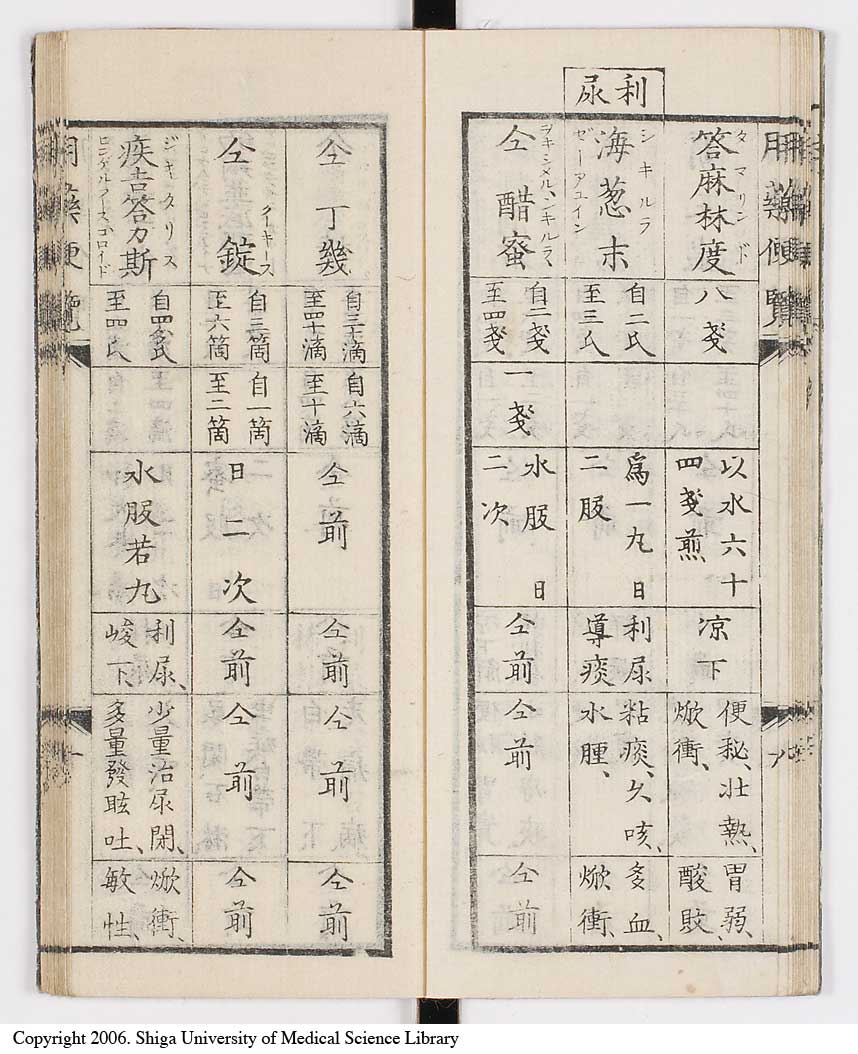 利尿
用藥便覽
タマリンド
答麻林度
八戔
以水六十
四戔煎
凉下
便秘、壮熱、
焮衝、
胃弱、
酸敗、
シキルラ
海葱末
ゼーアユイン
自二氏
至三氏
爲一丸日
二服
利尿
導痰
粘痰、久咳、
水腫、
多血、
焮衝、
ヲキシメル、シキルラ、
仝醋蜜
自二戔
至四戔
一戔
水服日
二次
仝前
仝前
仝前
仝丁幾
自三十滴
至四十滴
自六滴
至十滴
仝前
仝前
仝前
仝前
クーキース
仝錠
自三箇
至六箇
自一箇
至二箇
日二次
仝前
仝前
仝前
ジキタリス
疾吉答力斯
至四氏
水服若丸
利尿、
峻下、
少量治尿閉、
多量發眩吐、
焮衝、
敏性、
用藥便覽
Copyright 2006. Shiga University of Medical Science Library